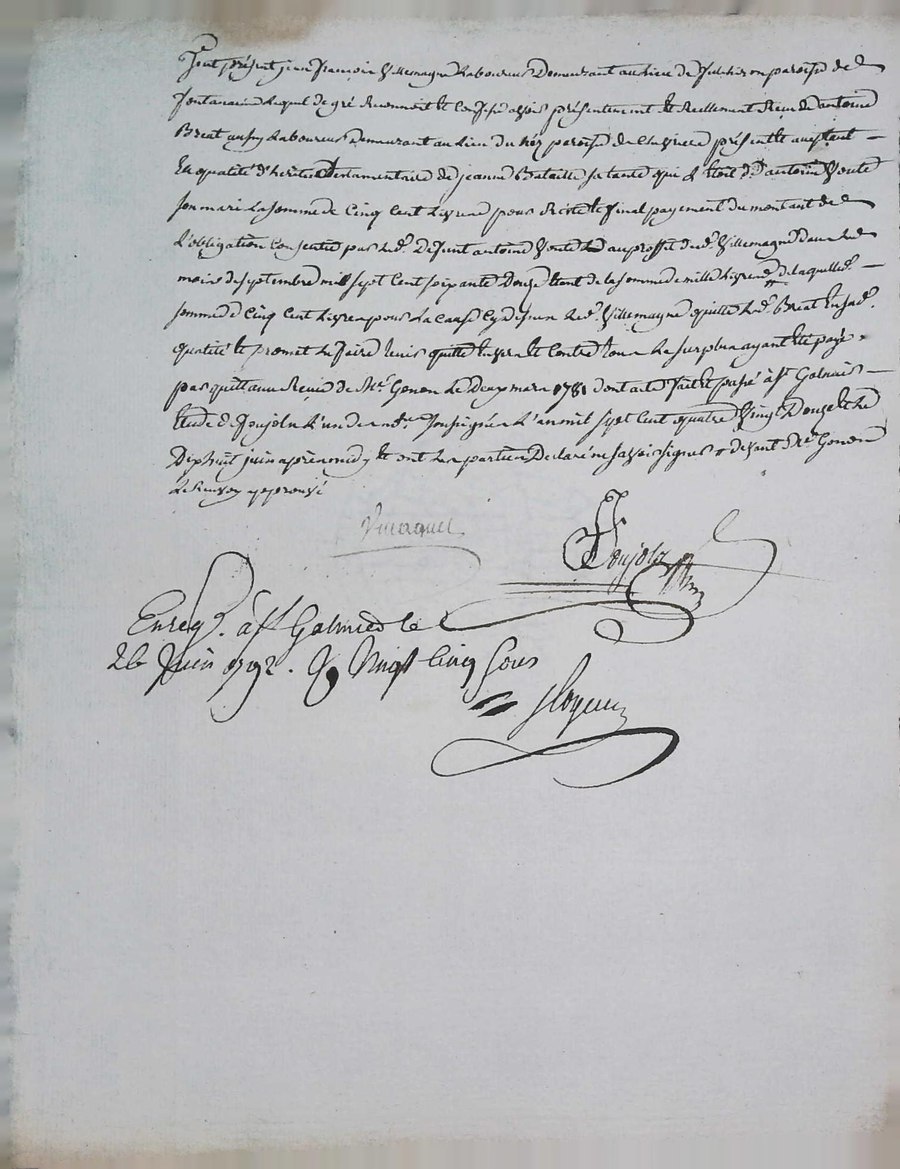 Fut présent jean francois Villemagne Laboureur Demeurant au lieu de paroisse de
fontanès Lequel de gré Reconnoit et Confesse avoir présentement et Reellement Reçu de antoine
Breat aussy Laboureur Demeurant au Lieu du paroisse de présent et aceptant
En qualité d'heritier Testamentaire de jeanne Bataille sa tante qui L'étoit dud antoine
son mari La somme de Cinq Cent Livres pour Reste et final payement du montant de
L'obligation Consentie par led. Deffunt antoine au proffit dud. Villemagne dans le
mois de septembre mil sept Cent soixante Douze etant de la somme de mille Livres de laquelle
somme de Cinq Cent Livres pour La Cause Cy dessus Led. Villemagne quitte Led. Breat En sad.
qualité et promet Le faire tenir quitte Envers et Contre tous Le surplus ayant eté payé
par quittance Reçue de Me. Gonon Le Deux mars 1781 dont acte fait et passé à St. Galmier
Etude de Poujols L'un des nres. soussignés L'an mil sept Cent quatre Vingt Douze et Le
Dix huit juin après midy et ont les parties Declaré ne savoir signer + devant Me. Gonon
Le Renvoy approuvé
Poujols
Enregé. à St Galmier le
26 Juin 1792. R Vingt Cinq sous